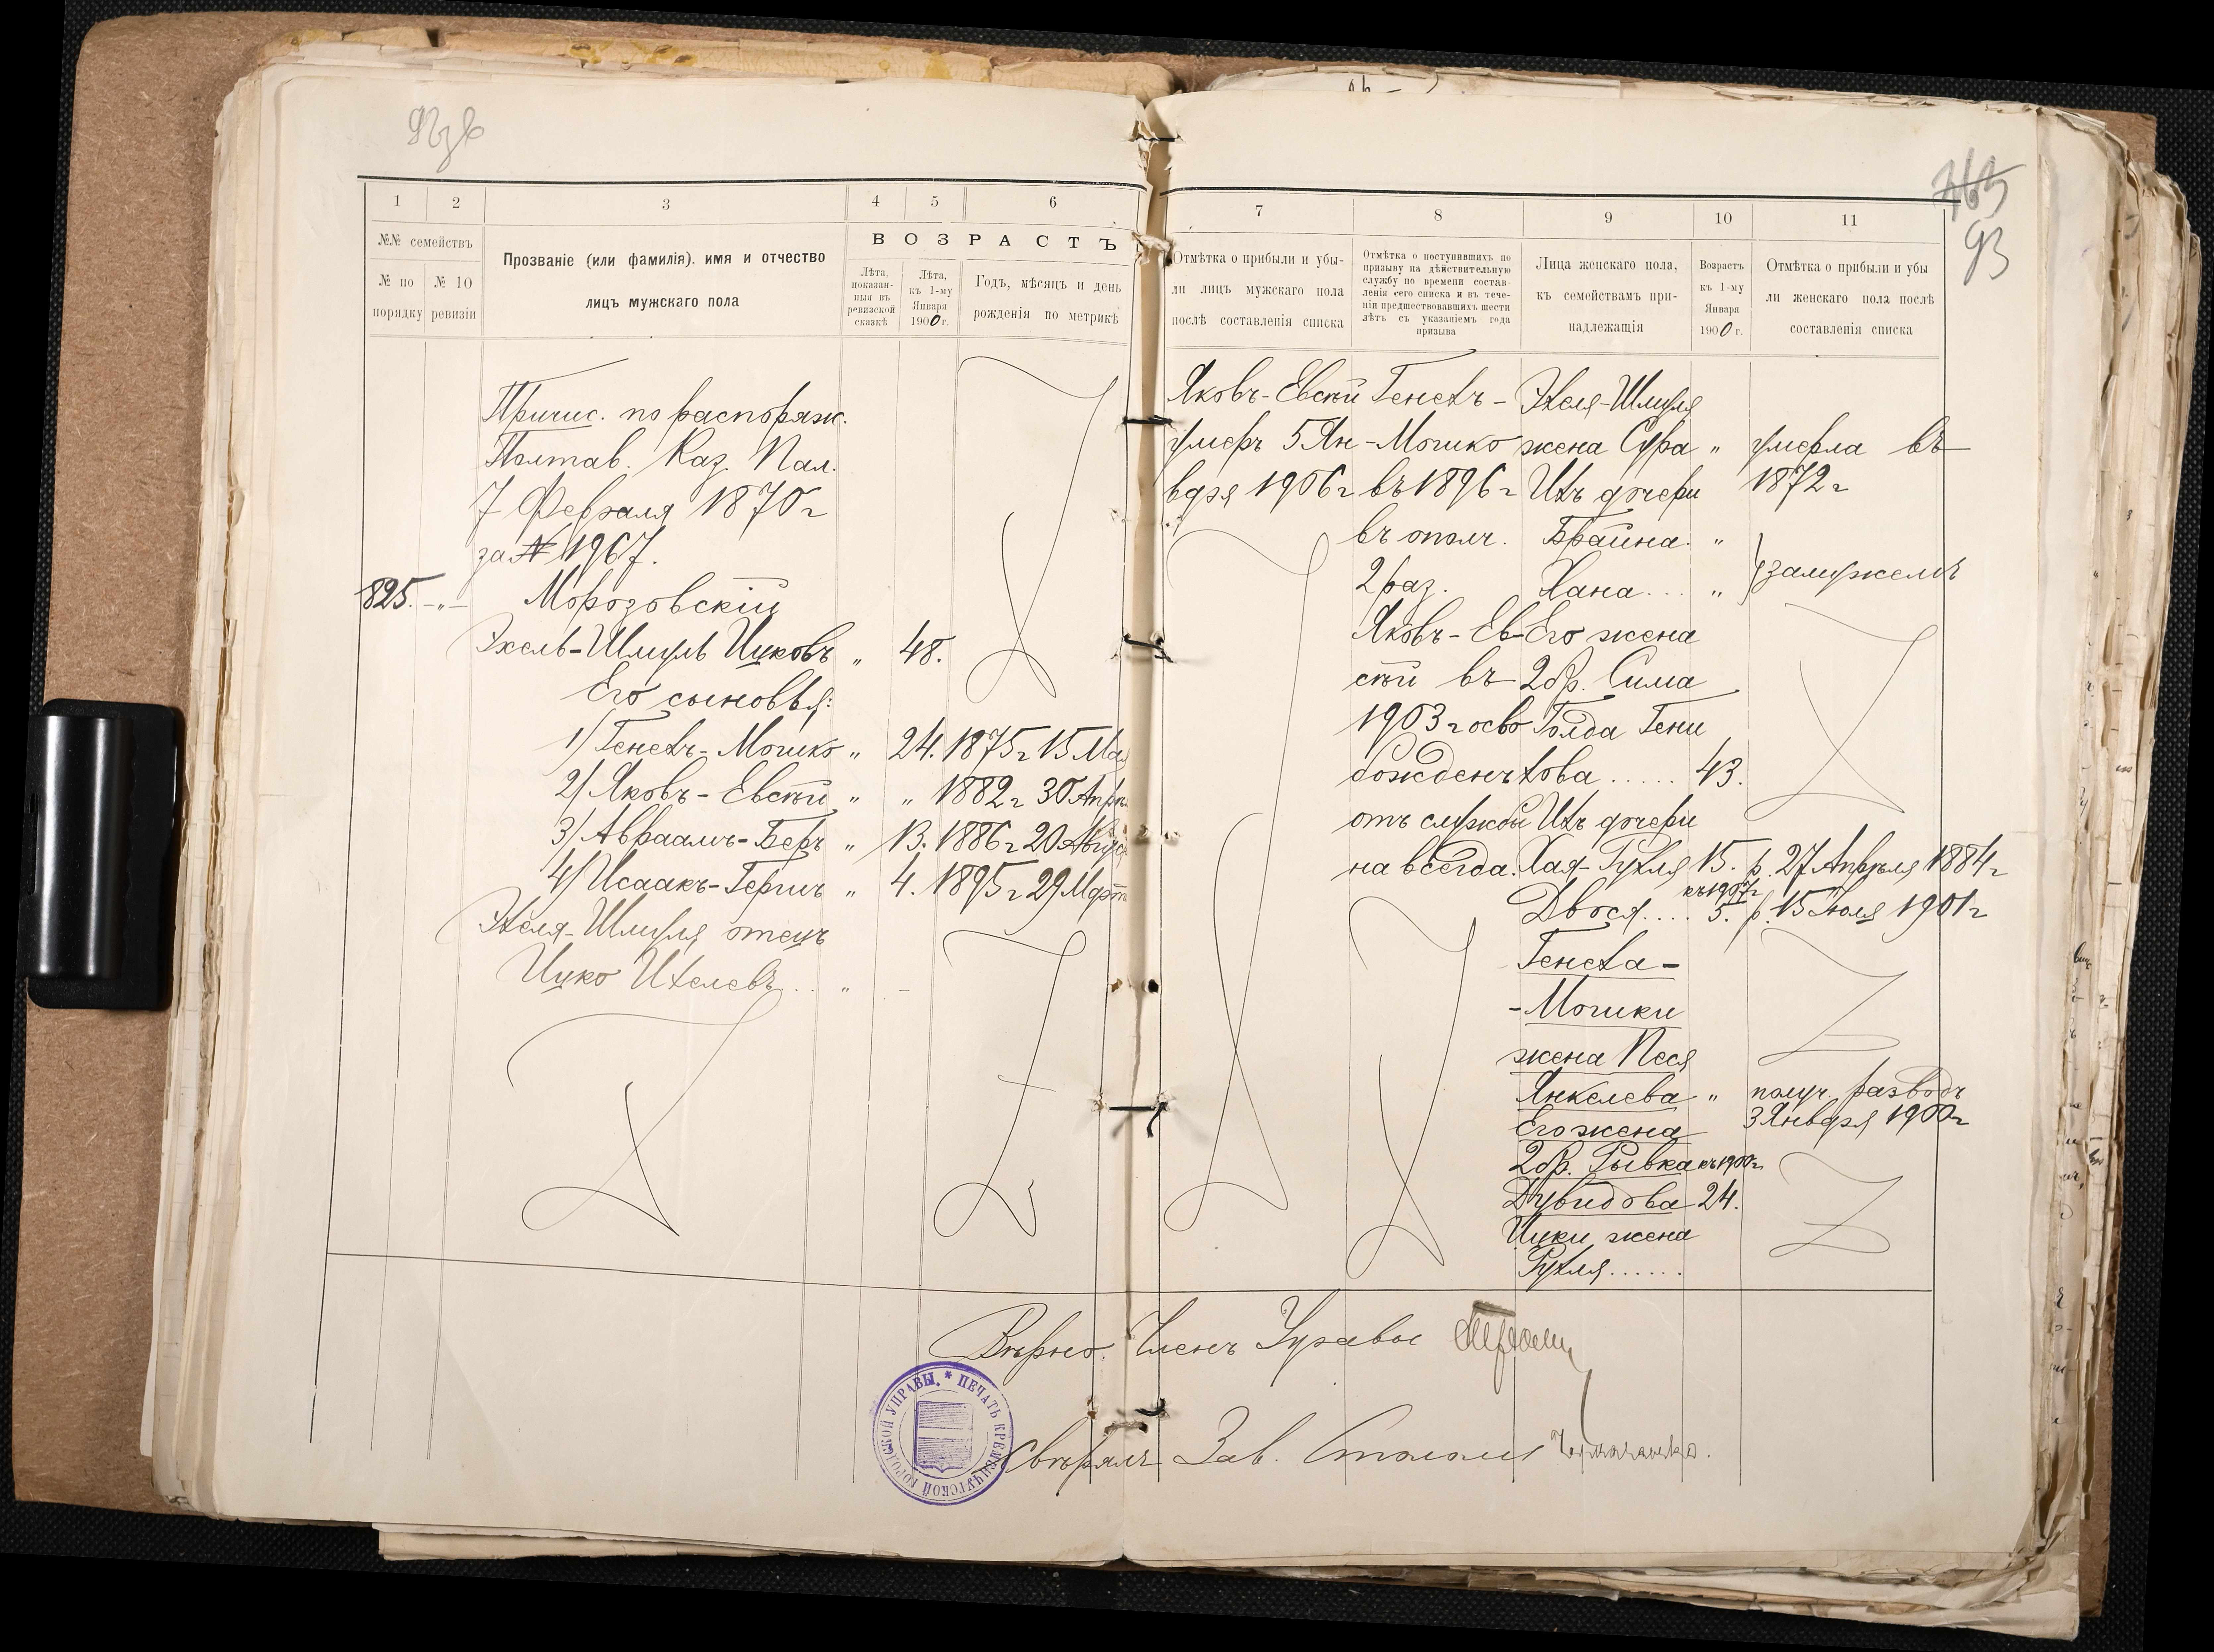 1 2 3 4 5 6
№№ семействъ
№ по порядку
№ 10 ревизіи
Прозваніе (или фамилія), имя и отчество
лицъ мужскаго пола
ВОЗРАСТЪ
Лѣта, показан-
ныя въ
ревизской
сказкѣ
Лѣта,
къ 1-му
Января
1900 г.
Годъ, мѣсяцъ и день
рожденія по метрикѣ
Причис. по распоряж.
Полтав. Каз. Пал.
7 Февраля 1870 г
за № 1967.
825. -„- Морозовскій
Эхель-Шмуль Ицковъ „ 48.
Его сыновья:
1) Генехъ-Мошко „ 24. 1875 г 15 Мая
2) Яковъ-Евсѣй „ „ 1882 г 30 Апрѣ
3) Авраамъ-Беръ „ 13. 1886 г 20 Авгус
4) Исаакъ-Гершъ „ 4. 1895 г 29 Март
Эхеля-Шмуля отецъ
Ицко Ихелевъ... „ -
93
7 8 9 10 11
Отмѣтка о прибыли и убы-
ли лицъ мужскаго пола
послѣ составленія списка
Отмѣтка о поступившихъ по
призыву на дѣйствительную
службу по времени состав-
ленія сего списка и въ тече-
ніи предшествовавшихъ шести
лѣтъ съ указаніемъ года
призыва
Лица женскаго пола,
къ семействамъ при-
надлежащія
Возрастъ
къ 1-му
Января
1900 г.
Отмѣтка о прибыли и убы
ли женскаго пола послѣ
составленія списка
Яковъ-Евсѣй
умеръ 5 Ян-
варя 1906 г
Генехъ-
-Мошко
въ 1896 г
въ ополч.
2 раз.
Яковъ-Ев-
сѣй въ
1903 г осво
божденъ
отъ службы
на всегда.
Эхеля-Шмуля
жена Сура „ умерла въ
1872 г
Ихъ дочери
Брайна. „
Хана... „ } замужемъ
Его жена
2 бр. Сима
Голда Гени
хова ...... 43.
Ихъ дочери
Хая-Рухля 15. р. 27 Апрѣля 1884 г
къ 1907 г
Двося.... 5. р. 15 Іюля 1901 г
Генеха-
-Мошки
жена Песя
Янкелева „ получ. разводъ
3 Января 1900 г
Его жена
2 бр. Рывка къ 1900 г
Дувидова 24.
Ицки жена
Рухля......
Вѣрно: Членъ Управы
Свѣрялъ Зав. Столомъ
ПЕЧАТЬ КРЕМЕНЧУГСКОЙ ГОРОДСКОЙ УПРАВЫ. *